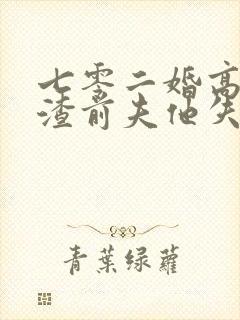 七零二婚高
渣前夫他失
青葉綠蘿